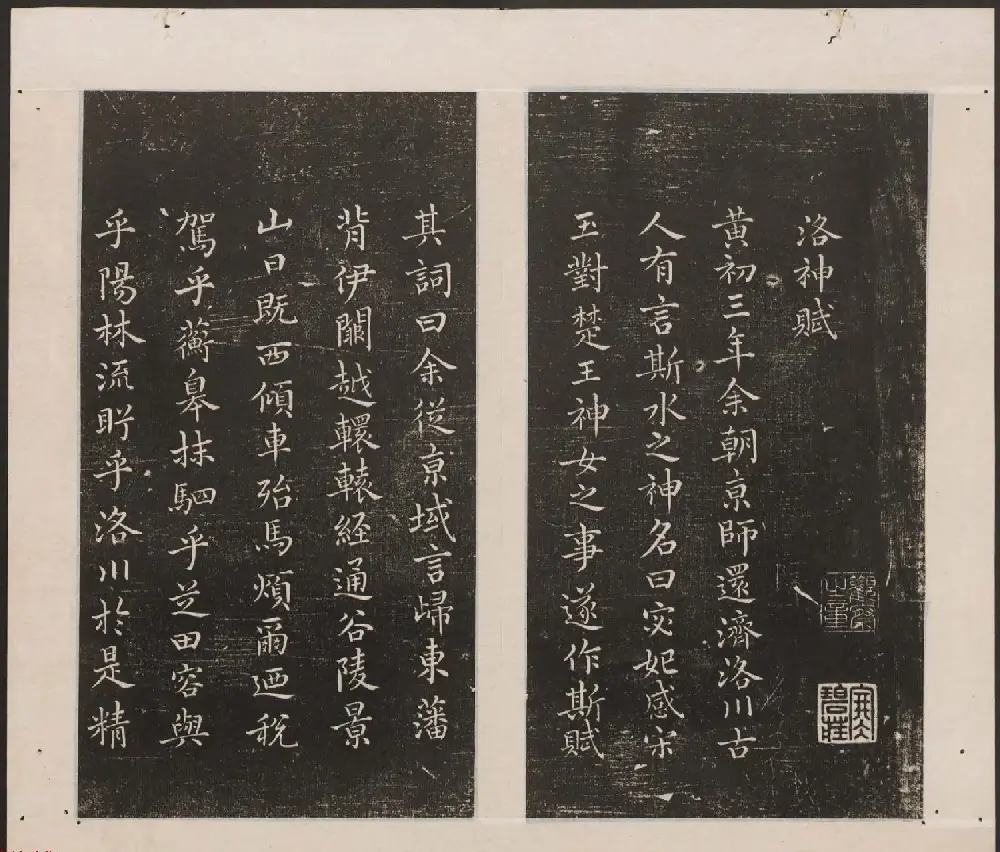 洛神賦
黃初三年余朝京師還濟洛川古
人有言斯水之神名曰宓妃感宋
玉對楚王神女之事遂作斯賦
其詞曰余從京域言歸東藩
背伊闕越轘轅経通谷陵景
山日既西傾車殆馬煩爾迺稅
駕乎蘅皋抹駟乎芝田容與
乎陽林流眄乎洛川於是精